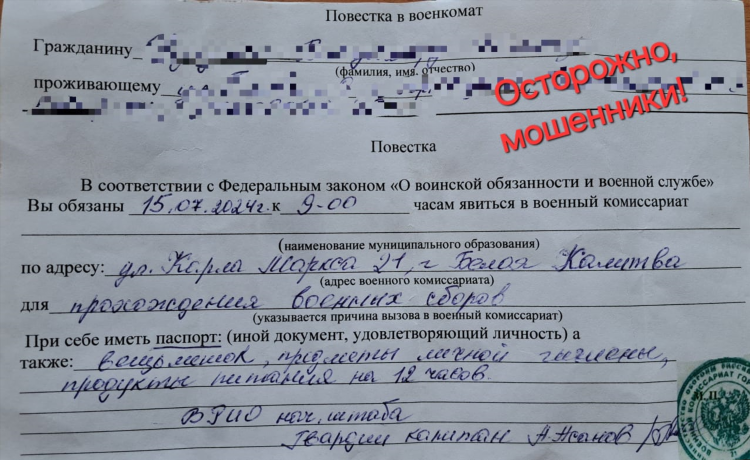 Повестка в военкомат
Гражданину
(фамилия, имя, отчество)
Осторожно,
мошенники!
проживающему
Повестка
В соответствии с Федеральным законом «О воинской обязанности и военной службе»
Вы обязаны 15.07.2024г. к 9-00 часам явиться в военный комиссариат
(наименование муниципального образования)
по адресу: ул. Карла Маркса 21, г Белая Калитва
(адрес военного комиссариата)
для прохождения военных сборов
(указывается причина вызова в военный комиссариат)
При себе иметь паспорт: (иной документ, удовлетворяющий личность) а
также: вещьмешок, предметы личной гигиены,
продукты питания на 12 часов.
ВРИО нач, штаба
Гвардии капитан А.Жанов